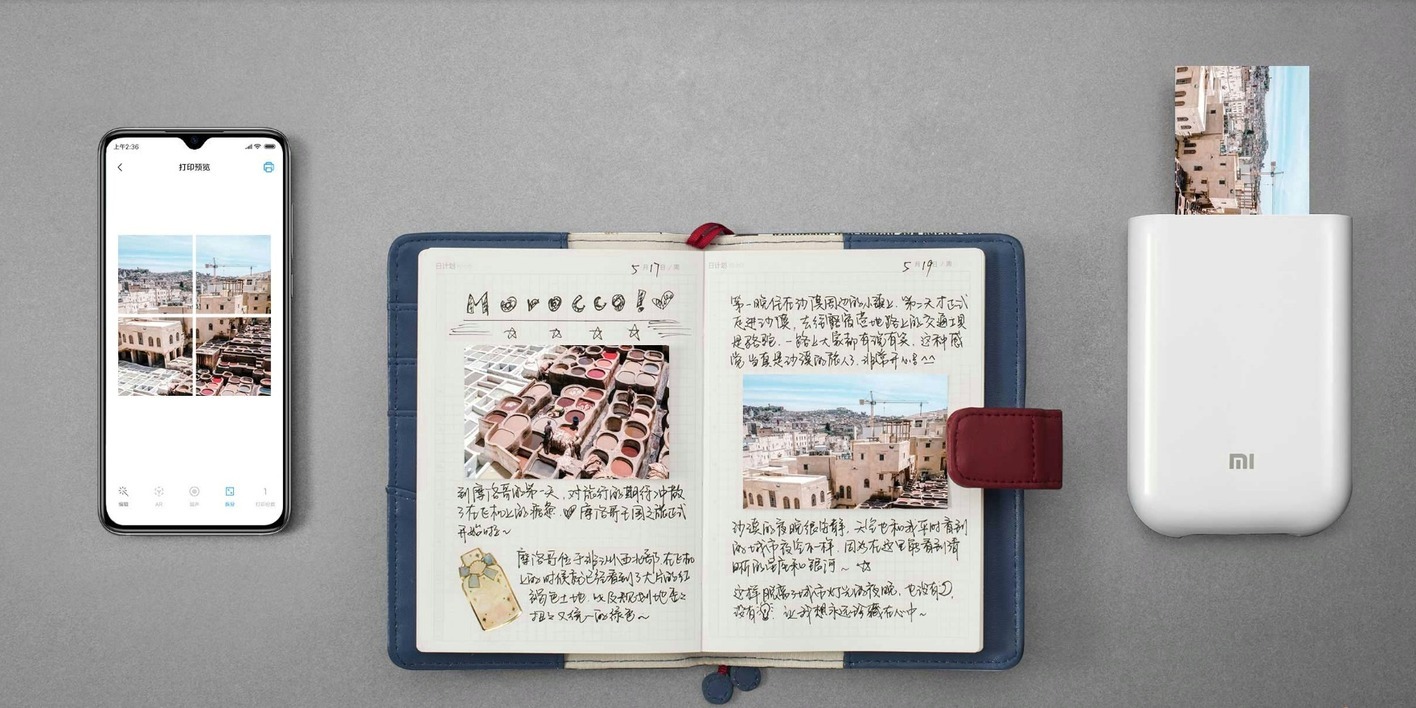 上午2:36
打印预览
编辑
AR
留声
拆分
1
打印份数
日计划
5月17日/周
Morocco!
到摩洛哥的第一天，对旅行的期待冲散
了在飞机上的疲惫，摩洛哥王国之旅正式
开始啦～
摩洛哥位于非洲西北部，在飞机
上的时候就已经看到了大片的红
褐色土地，以及规划地
又统一的绿色～
日计划
5月19日/周
第一晚住在沙漠周边的小镇上，第二天才正式
走进沙漠，去往酩宿营地路上的交通工具
是骆驼，一路上大家都有说有笑，这种感
觉当真是沙漠的旅人了，非常开心！^^
沙漠的夜晚很安静，天空也和我平时看到
的城市夜空不一样，因为在这里能看到清
晰的星座和银河～
这样脱离了城市灯光的夜晚，也没有
没有 让我想永远珍藏在心中～
mi